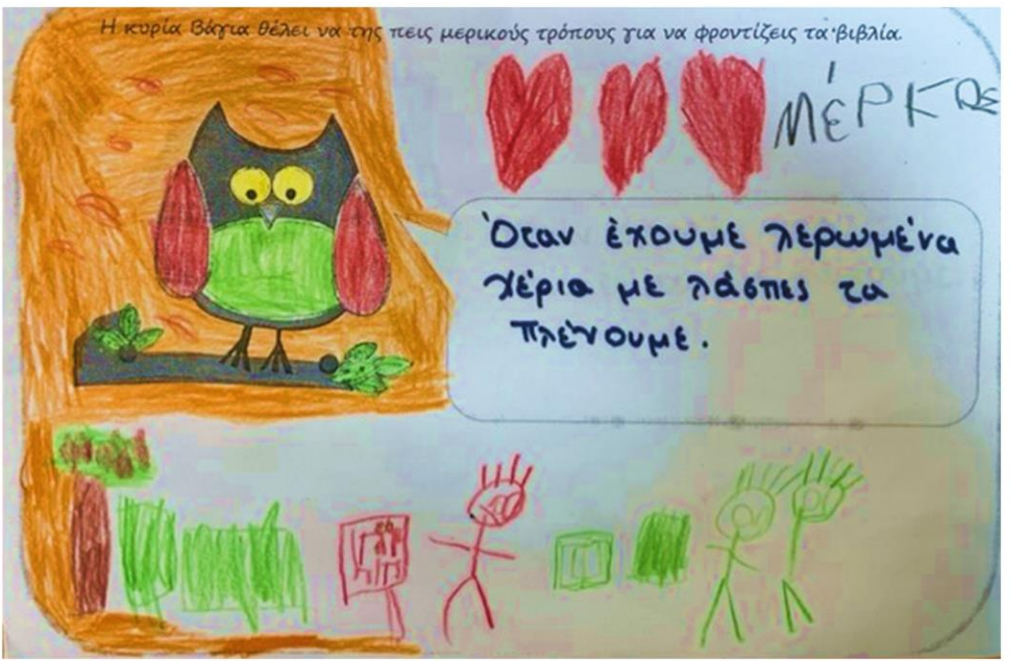 Η κυρία Βάγια θέλει να της πεις μερικούς τρόπους για να φροντίζεις τα βιβλία.
ΜΈΡΚΟΣ
Όταν έχουμε λερωμένα
χέρια με λάσπες τα
πλένουμε.